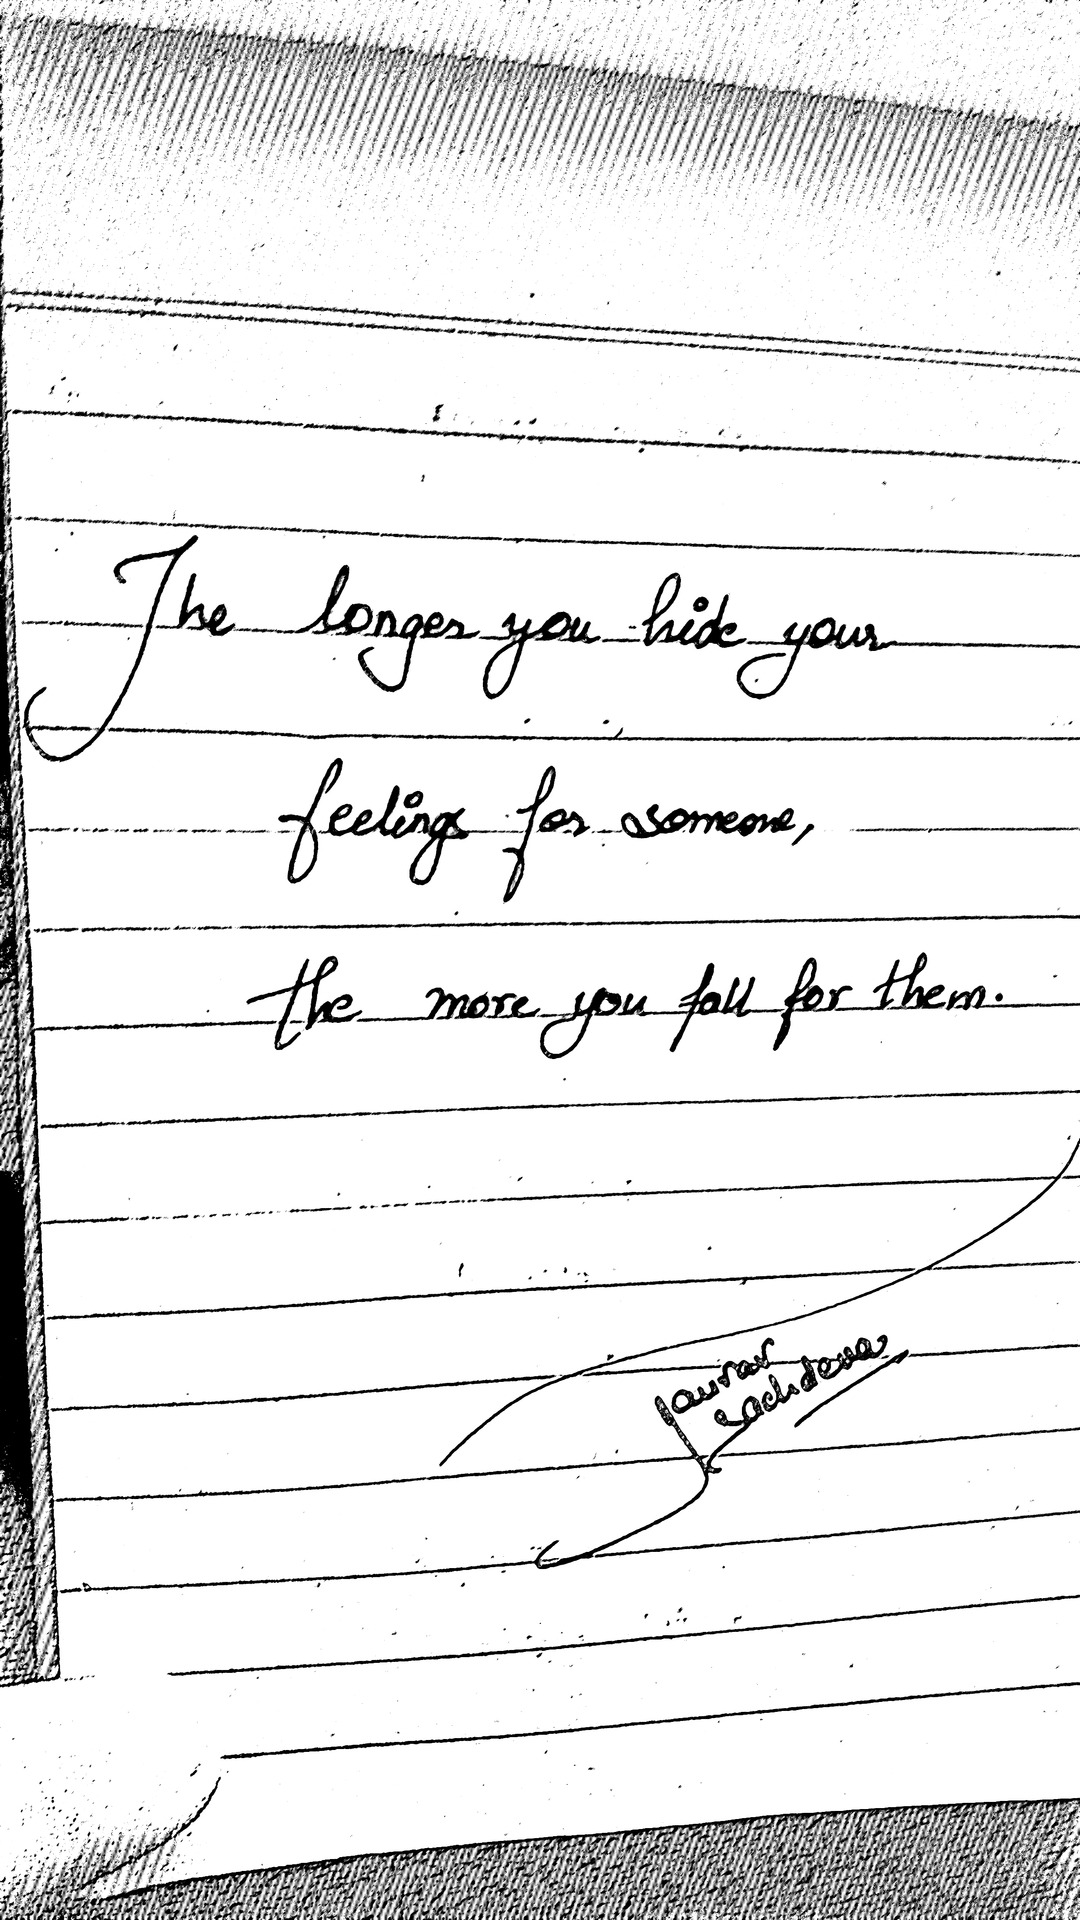 The longer you hide your
feelings for someone,
the more you fall for them.
sachdeva